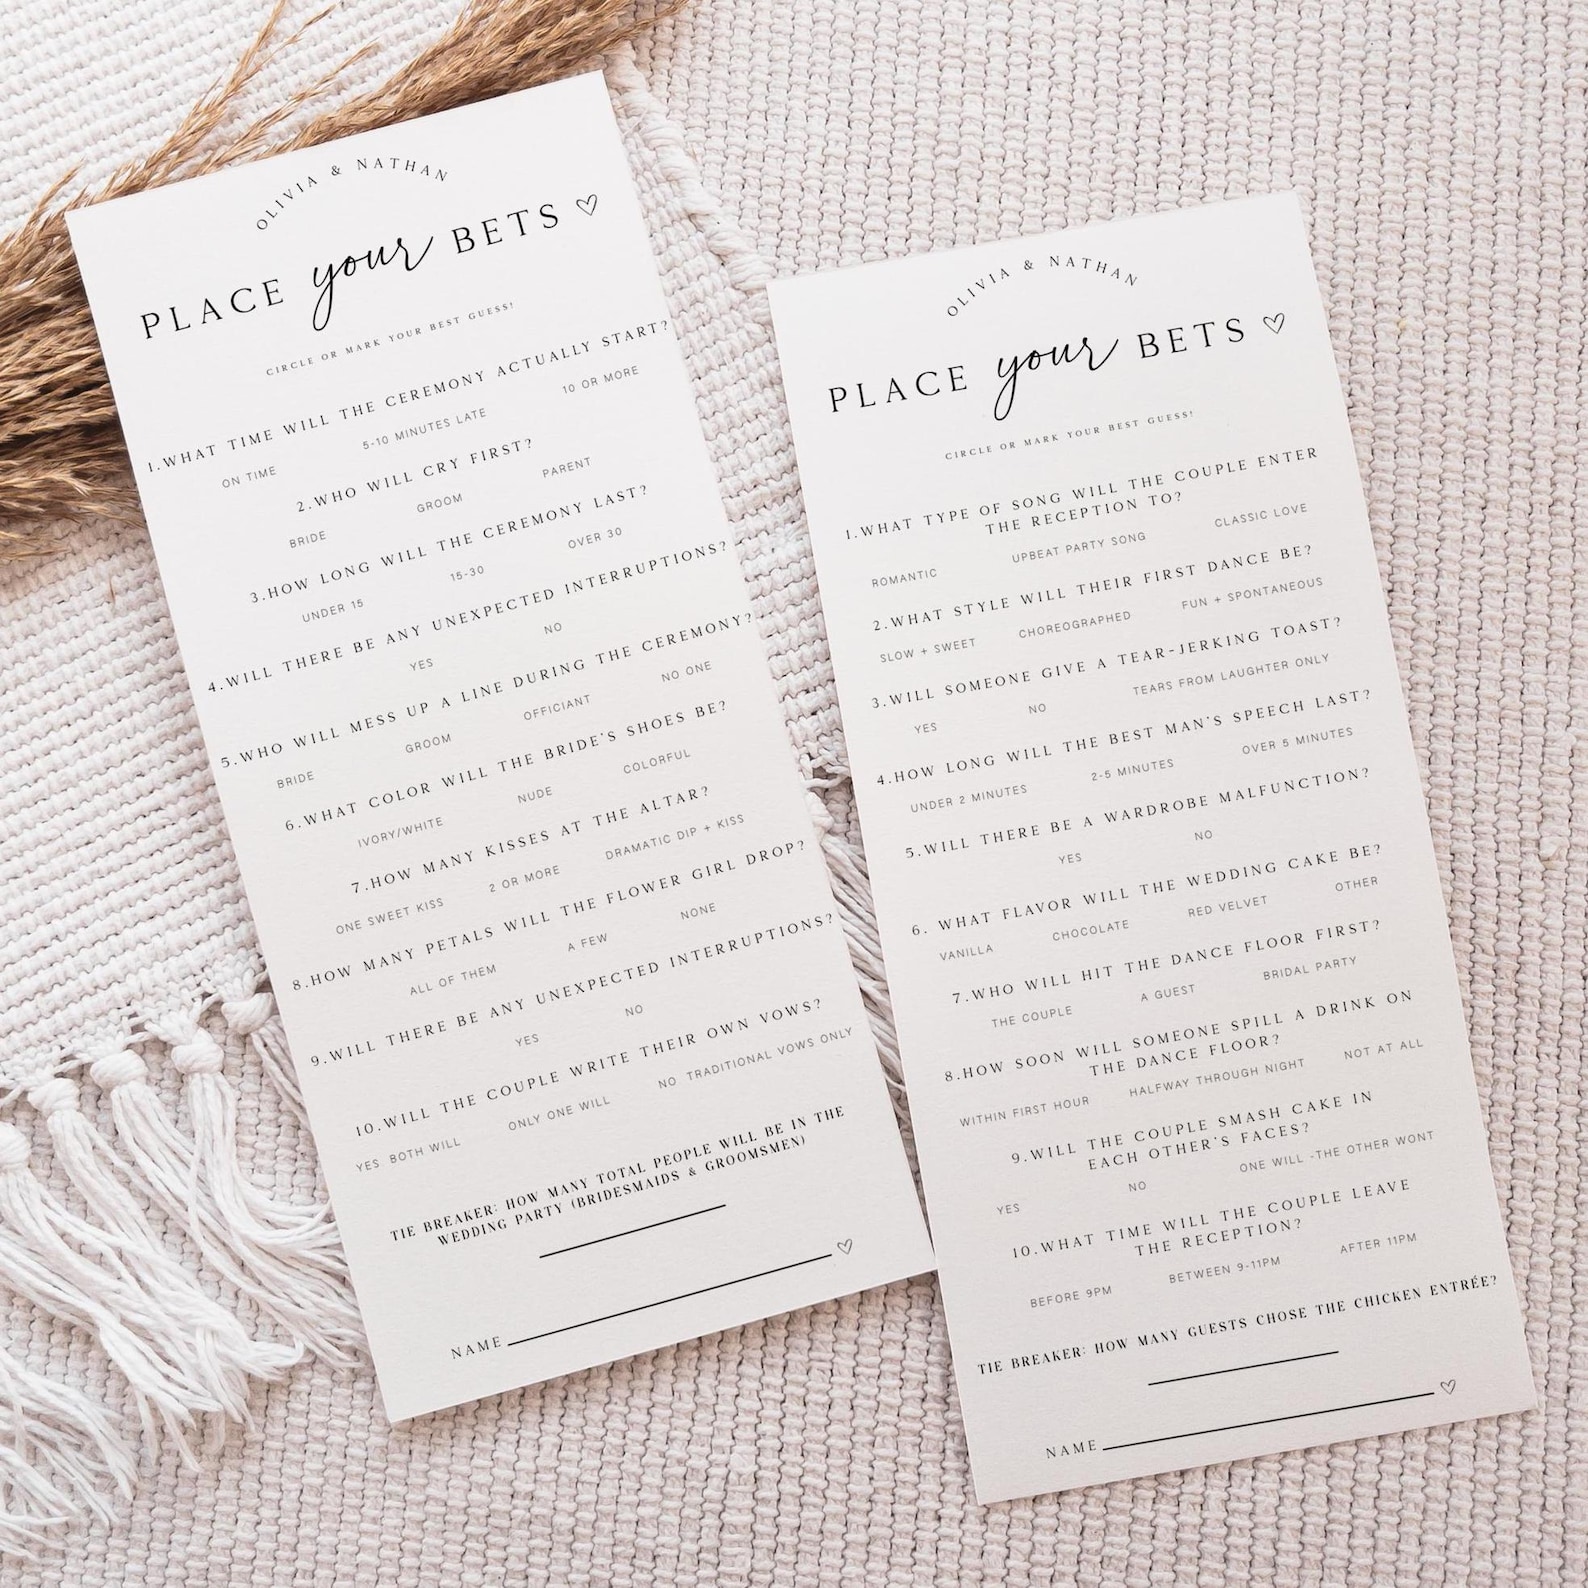 OLIVIA & NATHAN
PLACE your BETS
CIRCLE OR MARK YOUR BEST GUESS!
1.WHAT TIME WILL THE CEREMONY ACTUALLY START?
ON TIME 5-10 MINUTES LATE 10 OR MORE
2.WHO WILL CRY FIRST?
BRIDE GROOM PARENT
3.HOW LONG WILL THE CEREMONY LAST?
UNDER 15 15-30 OVER 30
4.WILL THERE BE ANY UNEXPECTED INTERRUPTIONS?
YES NO
5.WHO WILL MESS UP A LINE DURING THE CEREMONY?
BRIDE GROOM OFFICIANT NO ONE
6.WHAT COLOR WILL THE BRIDE'S SHOES BE?
IVORY/WHITE NUDE COLORFUL
7.HOW MANY KISSES AT THE ALTAR?
ONE SWEET KISS 2 OR MORE DRAMATIC DIP + KISS
8.HOW MANY PETALS WILL THE FLOWER GIRL DROP?
ALL OF THEM A FEW NONE
9.WILL THERE BE ANY UNEXPECTED INTERRUPTIONS?
YES NO
10.WILL THE COUPLE WRITE THEIR OWN VOWS?
YES BOTH WILL ONLY ONE WILL NO TRADITIONAL VOWS ONLY
TIE BREAKER: HOW MANY TOTAL PEOPLE WILL BE IN THE
WEDDING PARTY (BRIDESMAIDS & GROOMSMEN)
NAME
OLIVIA & NATHAN
PLACE your BETS
CIRCLE OR MARK YOUR BEST GUESS!
1.WHAT TYPE OF SONG WILL THE COUPLE ENTER
THE RECEPTION TO?
ROMANTIC UPBEAT PARTY SONG CLASSIC LOVE
2.WHAT STYLE WILL THEIR FIRST DANCE BE?
SLOW + SWEET CHOREOGRAPHED FUN + SPONTANEOUS
3.WILL SOMEONE GIVE A TEAR-JERKING TOAST?
YES NO TEARS FROM LAUGHTER ONLY
4.HOW LONG WILL THE BEST MAN'S SPEECH LAST?
UNDER 2 MINUTES 2-5 MINUTES OVER 5 MINUTES
5.WILL THERE BE A WARDROBE MALFUNCTION?
YES NO
6. WHAT FLAVOR WILL THE WEDDING CAKE BE?
VANILLA CHOCOLATE RED VELVET OTHER
7.WHO WILL HIT THE DANCE FLOOR FIRST?
THE COUPLE A GUEST BRIDAL PARTY
8.HOW SOON WILL SOMEONE SPILL A DRINK ON
THE DANCE FLOOR?
WITHIN FIRST HOUR HALFWAY THROUGH NIGHT NOT AT ALL
9.WILL THE COUPLE SMASH CAKE IN
EACH OTHER'S FACES?
YES NO ONE WILL -THE OTHER WONT
10.WHAT TIME WILL THE COUPLE LEAVE
THE RECEPTION?
BEFORE 9PM BETWEEN 9-11PM AFTER 11PM
TIE BREAKER: HOW MANY GUESTS CHOSE THE CHICKEN ENTRÉE?
NAME